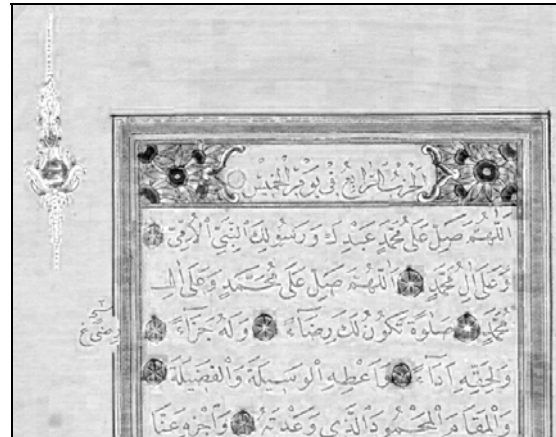 الحزب الرابع في يوم الخميس
اللهم صل على محمد عبدك ورسولك النبي الأمي
وعلى آل محمد اللهم صل على محمد وعلى آل
محمد صلوة تكون لك رضاء وله جزاء
ولحقه اداء واعطه الوسيلة والفضيلة
والمقام المحمود الذي وعدته واجزه عنا